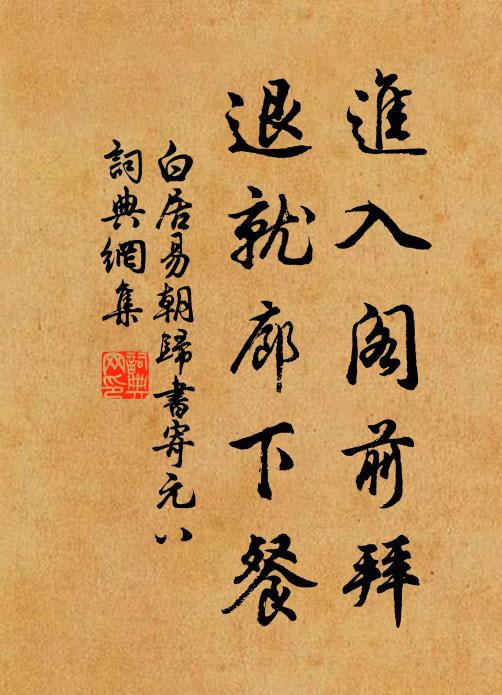 進入閣前拜
退就廊下餐
白居易朝歸書寄元八
詞典網集
詞典
网印